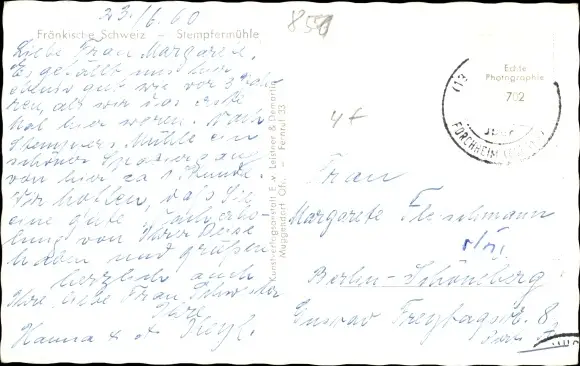 23./6. 60
856
Fränkische Schweiz – Stempfermühle
Liebe Frau Margarete.
Es gefällt uns hier
ebenso gut wie vor 3 Jah-
ren, als wir das erste
Mal hier waren. Nach
Mühle ein
schöner Spaziergang
von hier ca 1 Stunde.
Wir hoffen, daß Sie
eine gute
von Ihrer Reise
haben und grüßen
herzlich auch
Ihre liebe Frau Schwester
Ihre
Hanna &
Kunstverlagsanstalt E. v. Leistner & Demantia
Muggendorf Ofr. – Fernruf 33
Echte
Photographie
702
(13
FORCHHEIM
Frau
Margarete Fleischmann
Berlin-Schöneberg
Gustav Freytagstr. 8